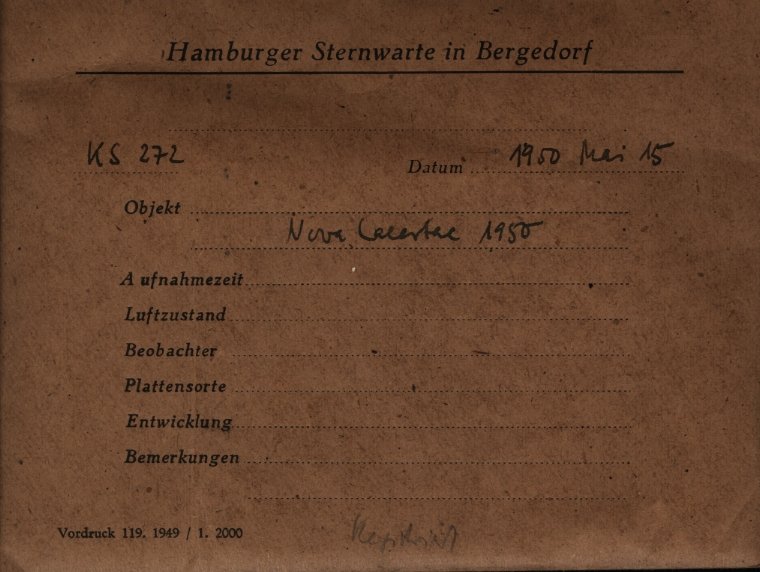 Hamburger Sternwarte in Bergedorf
KS 272
Datum 1950 Mai 15
Objekt
Nova Lacertae 1950
Aufnahmezeit
Luftzustand
Beobachter
Plattensorte
Entwicklung
Bemerkungen
Vordruck 119. 1949 / 1. 2000